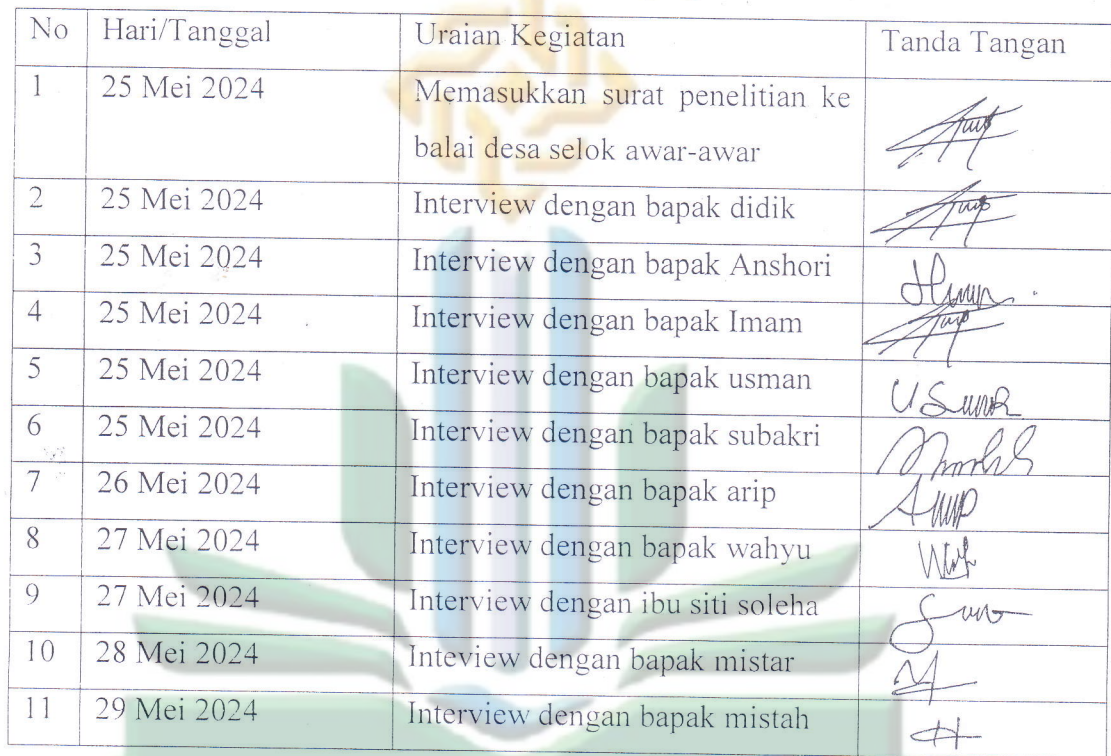 No Hari/Tanggal Uraian Kegiatan Tanda Tangan
1 25 Mei 2024 Memasukkan surat penelitian ke
balai desa selok awar-awar
2 25 Mei 2024 Interview dengan bapak didik
3 25 Mei 2024 Interview dengan bapak Anshori
4 25 Mei 2024 Interview dengan bapak Imam
5 25 Mei 2024 Interview dengan bapak usman
6 25 Mei 2024 Interview dengan bapak subakri
7 26 Mei 2024 Interview dengan bapak arip
8 27 Mei 2024 Interview dengan bapak wahyu
9 27 Mei 2024 Interview dengan ibu siti soleha
10 28 Mei 2024 Inteview dengan bapak mistar
11 29 Mei 2024 Interview dengan bapak mistah